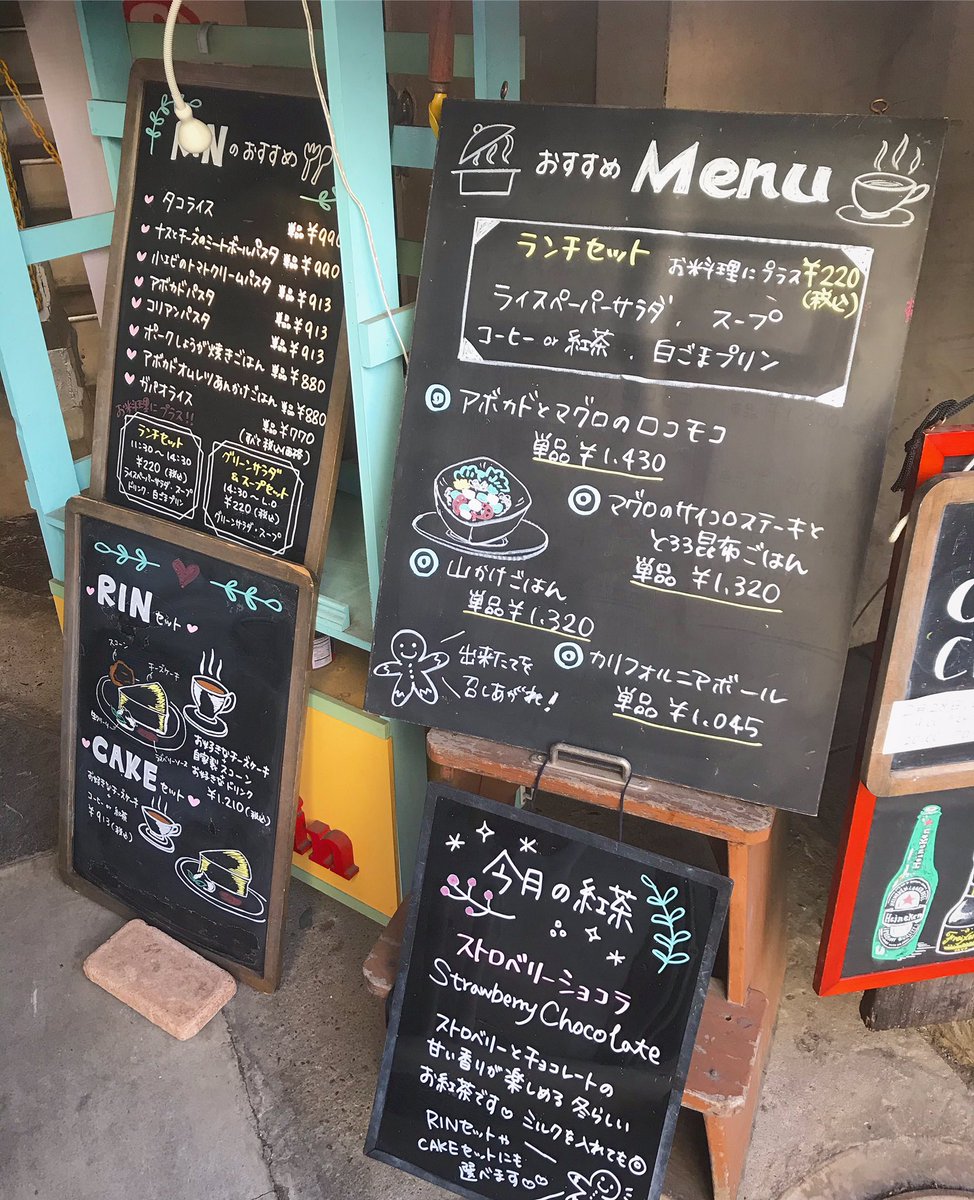 RINのおすすめ
タコライス
単品¥990
ナスとチーズのミートボールパスタ
単品¥990
小エビのトマトクリームパスタ
単品¥913
アボカドパスタ
単品¥913
コリアンパスタ
単品¥913
ポークしょうが焼きごはん
単品¥880
アボカドオムレツあんかけごはん
単品¥880
ガパオライス
単品¥770
お料理にプラス!!
ランチセット
11:30〜14:30
¥220(税込)
ライスペーパーサラダ・スープ
ドリンク・白ごまプリン
グリーンサラダ
&スープセット
14:30〜L.O
¥220(税込)
グリーンサラダ・スープ
RINセット
スコーン
チーズケーキ
お好きなチーズケーキ
自家製スコーン
お好きなドリンク
¥1,210(税込)
CAKEセット
お好きなチーズケーキ
コーヒー or 紅茶
¥913(税込)
おすすめ Menu
ランチセット お料理にプラス¥220
(税込)
ライスペーパーサラダ・スープ
コーヒー or 紅茶・白ごまプリン
◎アボカドとマグロのロコモコ
単品¥1,430
◎マグロのサイコロステーキと
とろろ昆布ごはん
単品 ¥1,320
◎山かけごはん
単品¥1,320
◎カリフォルニアボール
単品 ¥1,045
出来たてを
召しあがれ!
今月の紅茶
ストロベリーショコラ
Strawberry Chocolate
ストロベリーとチョコレートの
甘い香りが楽しめる冬らしい
お紅茶です♡ミルクを入れても◎
RINセットや
CAKEセットにも
選べます♡♡
Heineken